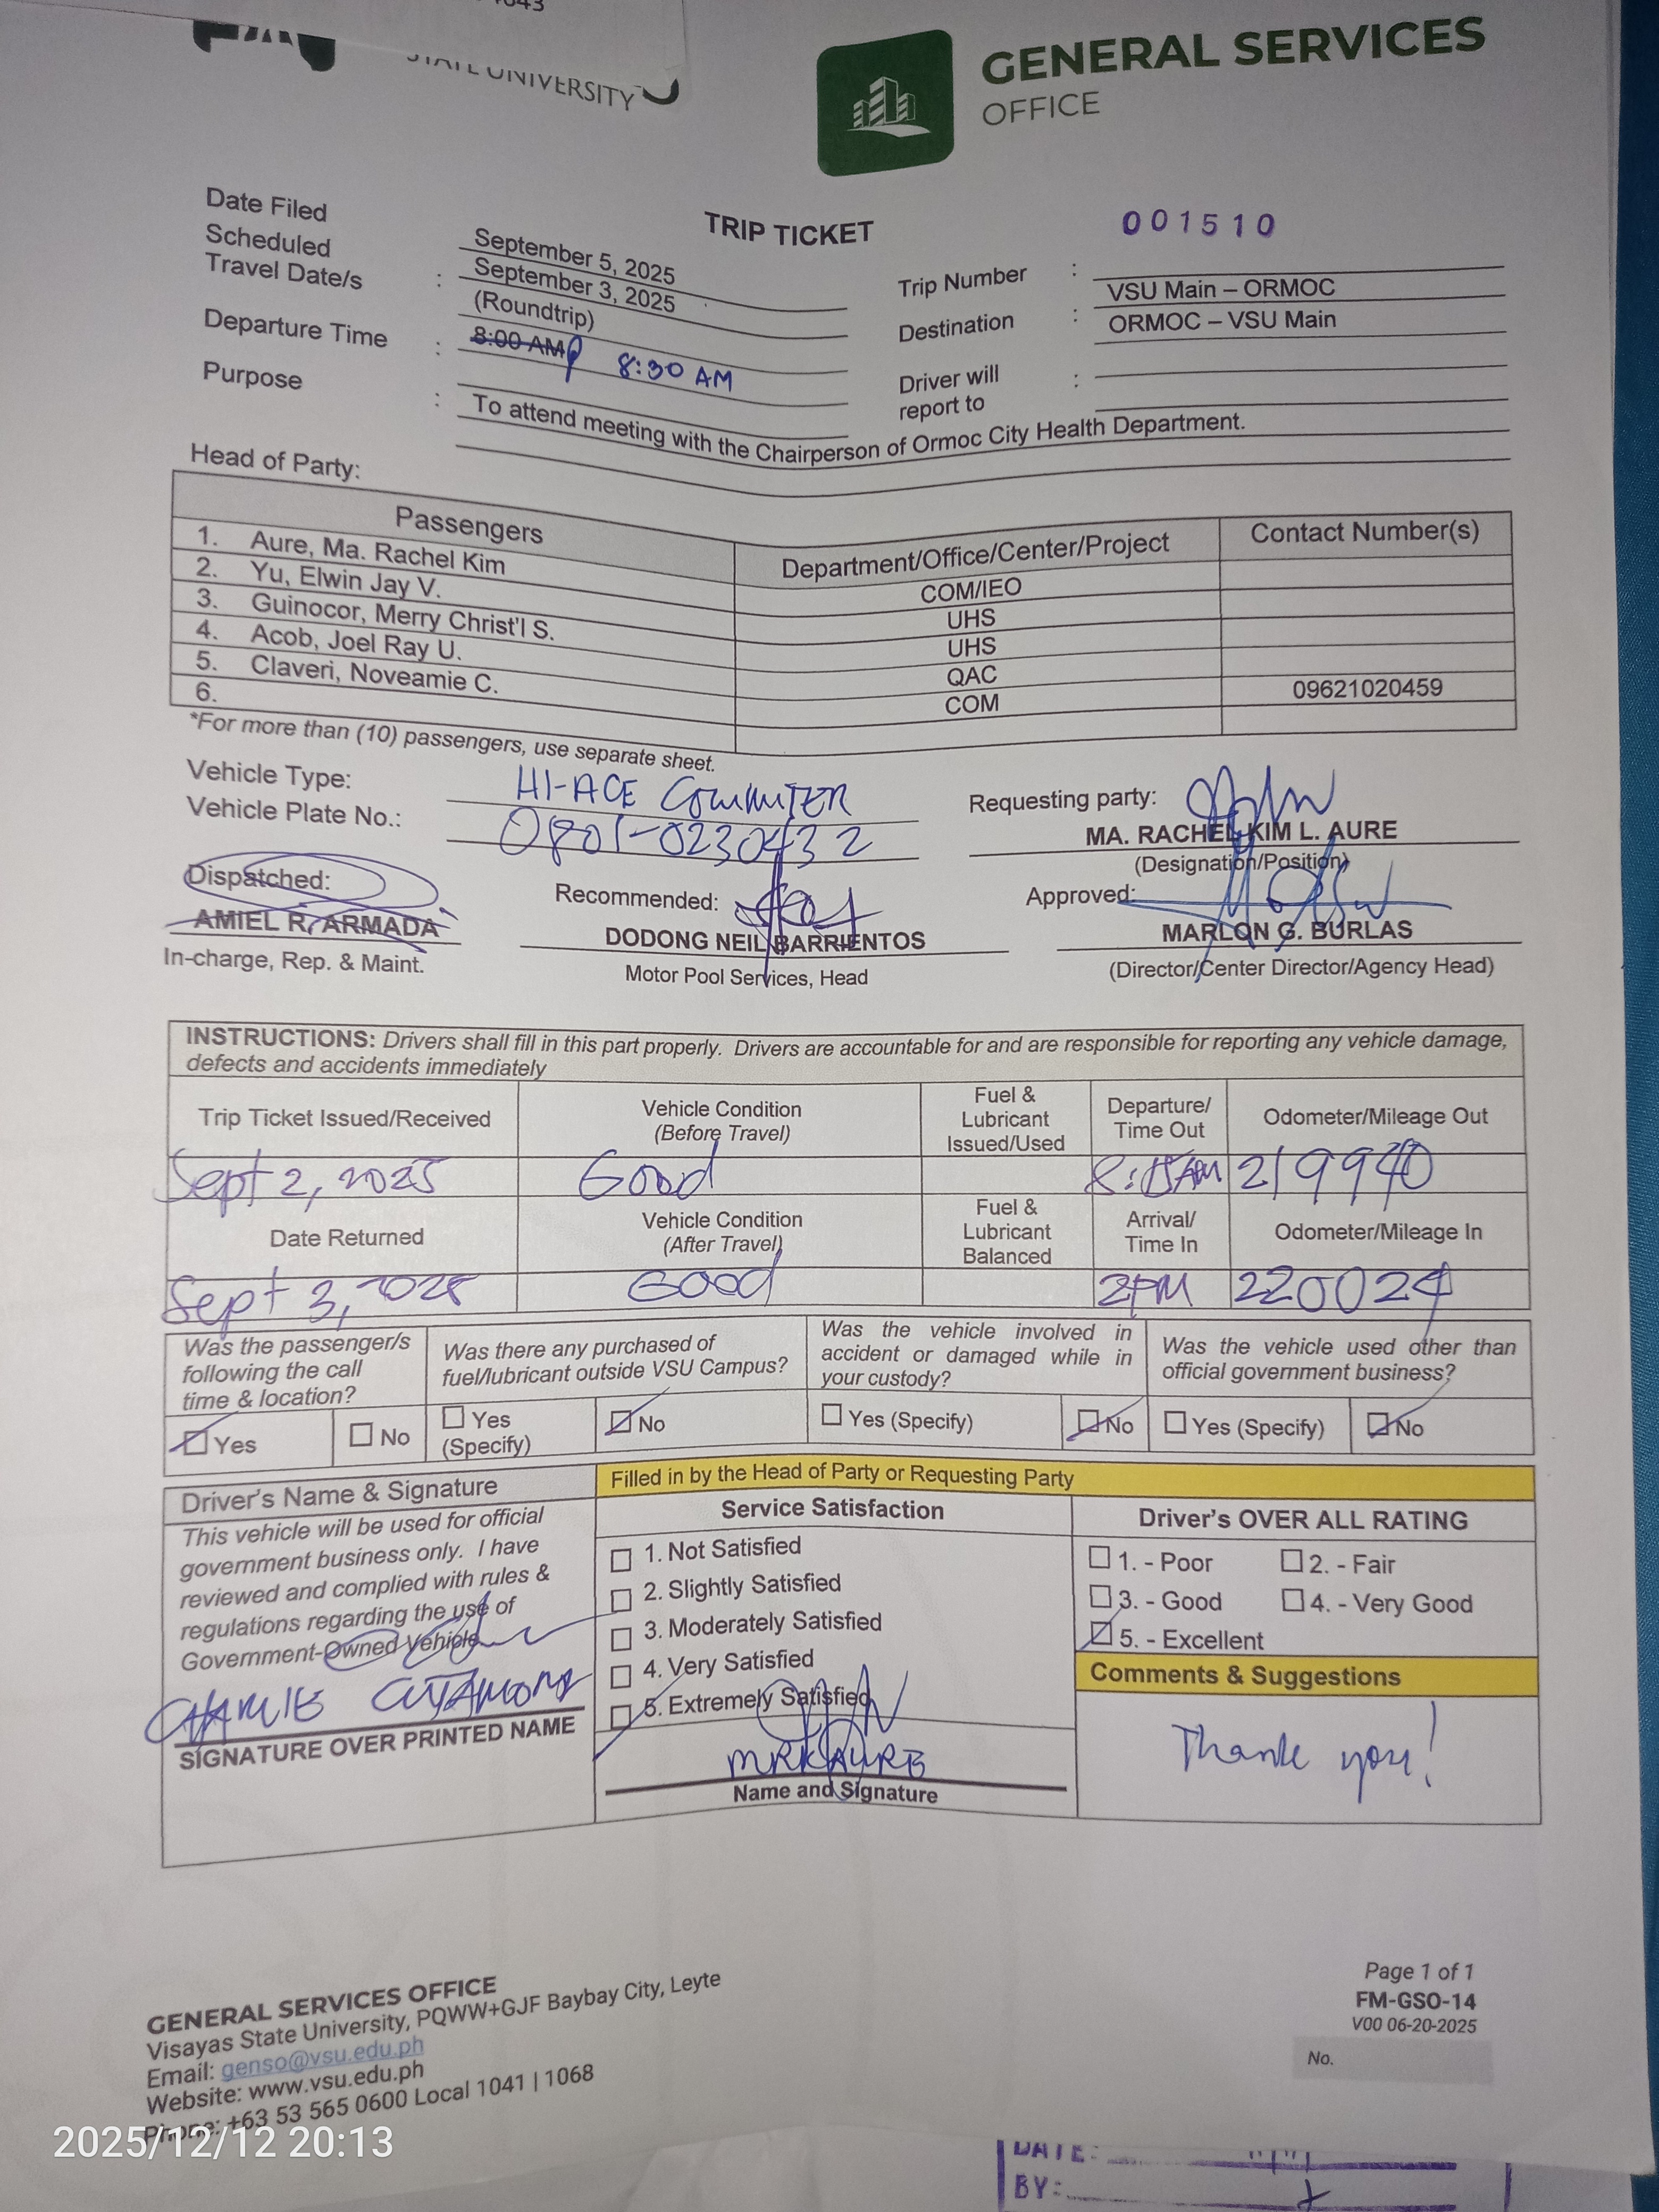 STATE UNIVERSITY
GENERAL SERVICES
OFFICE
TRIP TICKET
001510
Date Filed
September 5, 2025
Scheduled
Travel Date/s : September 3, 2025
(Roundtrip)
Departure Time : 8:00 AM 8:30 AM
Purpose : To attend meeting with the Chairperson of Ormoc City Health Department.
Trip Number :
Destination : VSU Main – ORMOC
ORMOC – VSU Main
Driver will
report to :
Head of Party:
Passengers Department/Office/Center/Project Contact Number(s)
1. Aure, Ma. Rachel Kim COM/IEO
2. Yu, Elwin Jay V. UHS
3. Guinocor, Merry Christ'l S. UHS
4. Acob, Joel Ray U. QAC
5. Claveri, Noveamie C. COM 09621020459
6.
*For more than (10) passengers, use separate sheet.
Vehicle Type: HI-ACE COMMUTER
Vehicle Plate No.: 0801-0230432
Requesting party:
MA. RACHEL KIM L. AURE
(Designation/Position)
Dispatched:
AMIEL R. ARMADA
In-charge, Rep. & Maint.
Recommended:
DODONG NEIL BARRIENTOS
Motor Pool Services, Head
Approved:
MARLON G. BURLAS
(Director/Center Director/Agency Head)
INSTRUCTIONS: Drivers shall fill in this part properly. Drivers are accountable for and are responsible for reporting any vehicle damage,
defects and accidents immediately
Trip Ticket Issued/Received
Vehicle Condition
(Before Travel)
Fuel &
Lubricant
Issued/Used
Departure/
Time Out
Odometer/Mileage Out
Sept 2, 2025 Good 8:15AM 219940
Date Returned
Vehicle Condition
(After Travel)
Fuel &
Lubricant
Balanced
Arrival/
Time In
Odometer/Mileage In
Sept 3, 2025 Good 2PM 220024
Was the passenger/s
following the call
time & location?
Was there any purchased of
fuel/lubricant outside VSU Campus?
Was the vehicle involved in
accident or damaged while in
your custody?
Was the vehicle used other than
official government business?
Yes No
Yes
(Specify)
No
Yes (Specify) No
Yes (Specify) No
Driver's Name & Signature
This vehicle will be used for official
government business only. I have
reviewed and complied with rules &
regulations regarding the use of
Government-Owned Vehicle
SIGNATURE OVER PRINTED NAME
Filled in by the Head of Party or Requesting Party
Service Satisfaction
1. Not Satisfied
2. Slightly Satisfied
3. Moderately Satisfied
4. Very Satisfied
5. Extremely Satisfied
MRKAURE
Name and Signature
Driver's OVER ALL RATING
1. - Poor 2. - Fair
3. - Good 4. - Very Good
5. - Excellent
Comments & Suggestions
Thank you!
GENERAL SERVICES OFFICE
Visayas State University, PQWW+GJF Baybay City, Leyte
Email: genso@vsu.edu.ph
Website: www.vsu.edu.ph
Phone: +63 53 565 0600 Local 1041 | 1068
Page 1 of 1
FM-GSO-14
V00 06-20-2025
No.
2025/12/12 20:13
DATE:
BY: